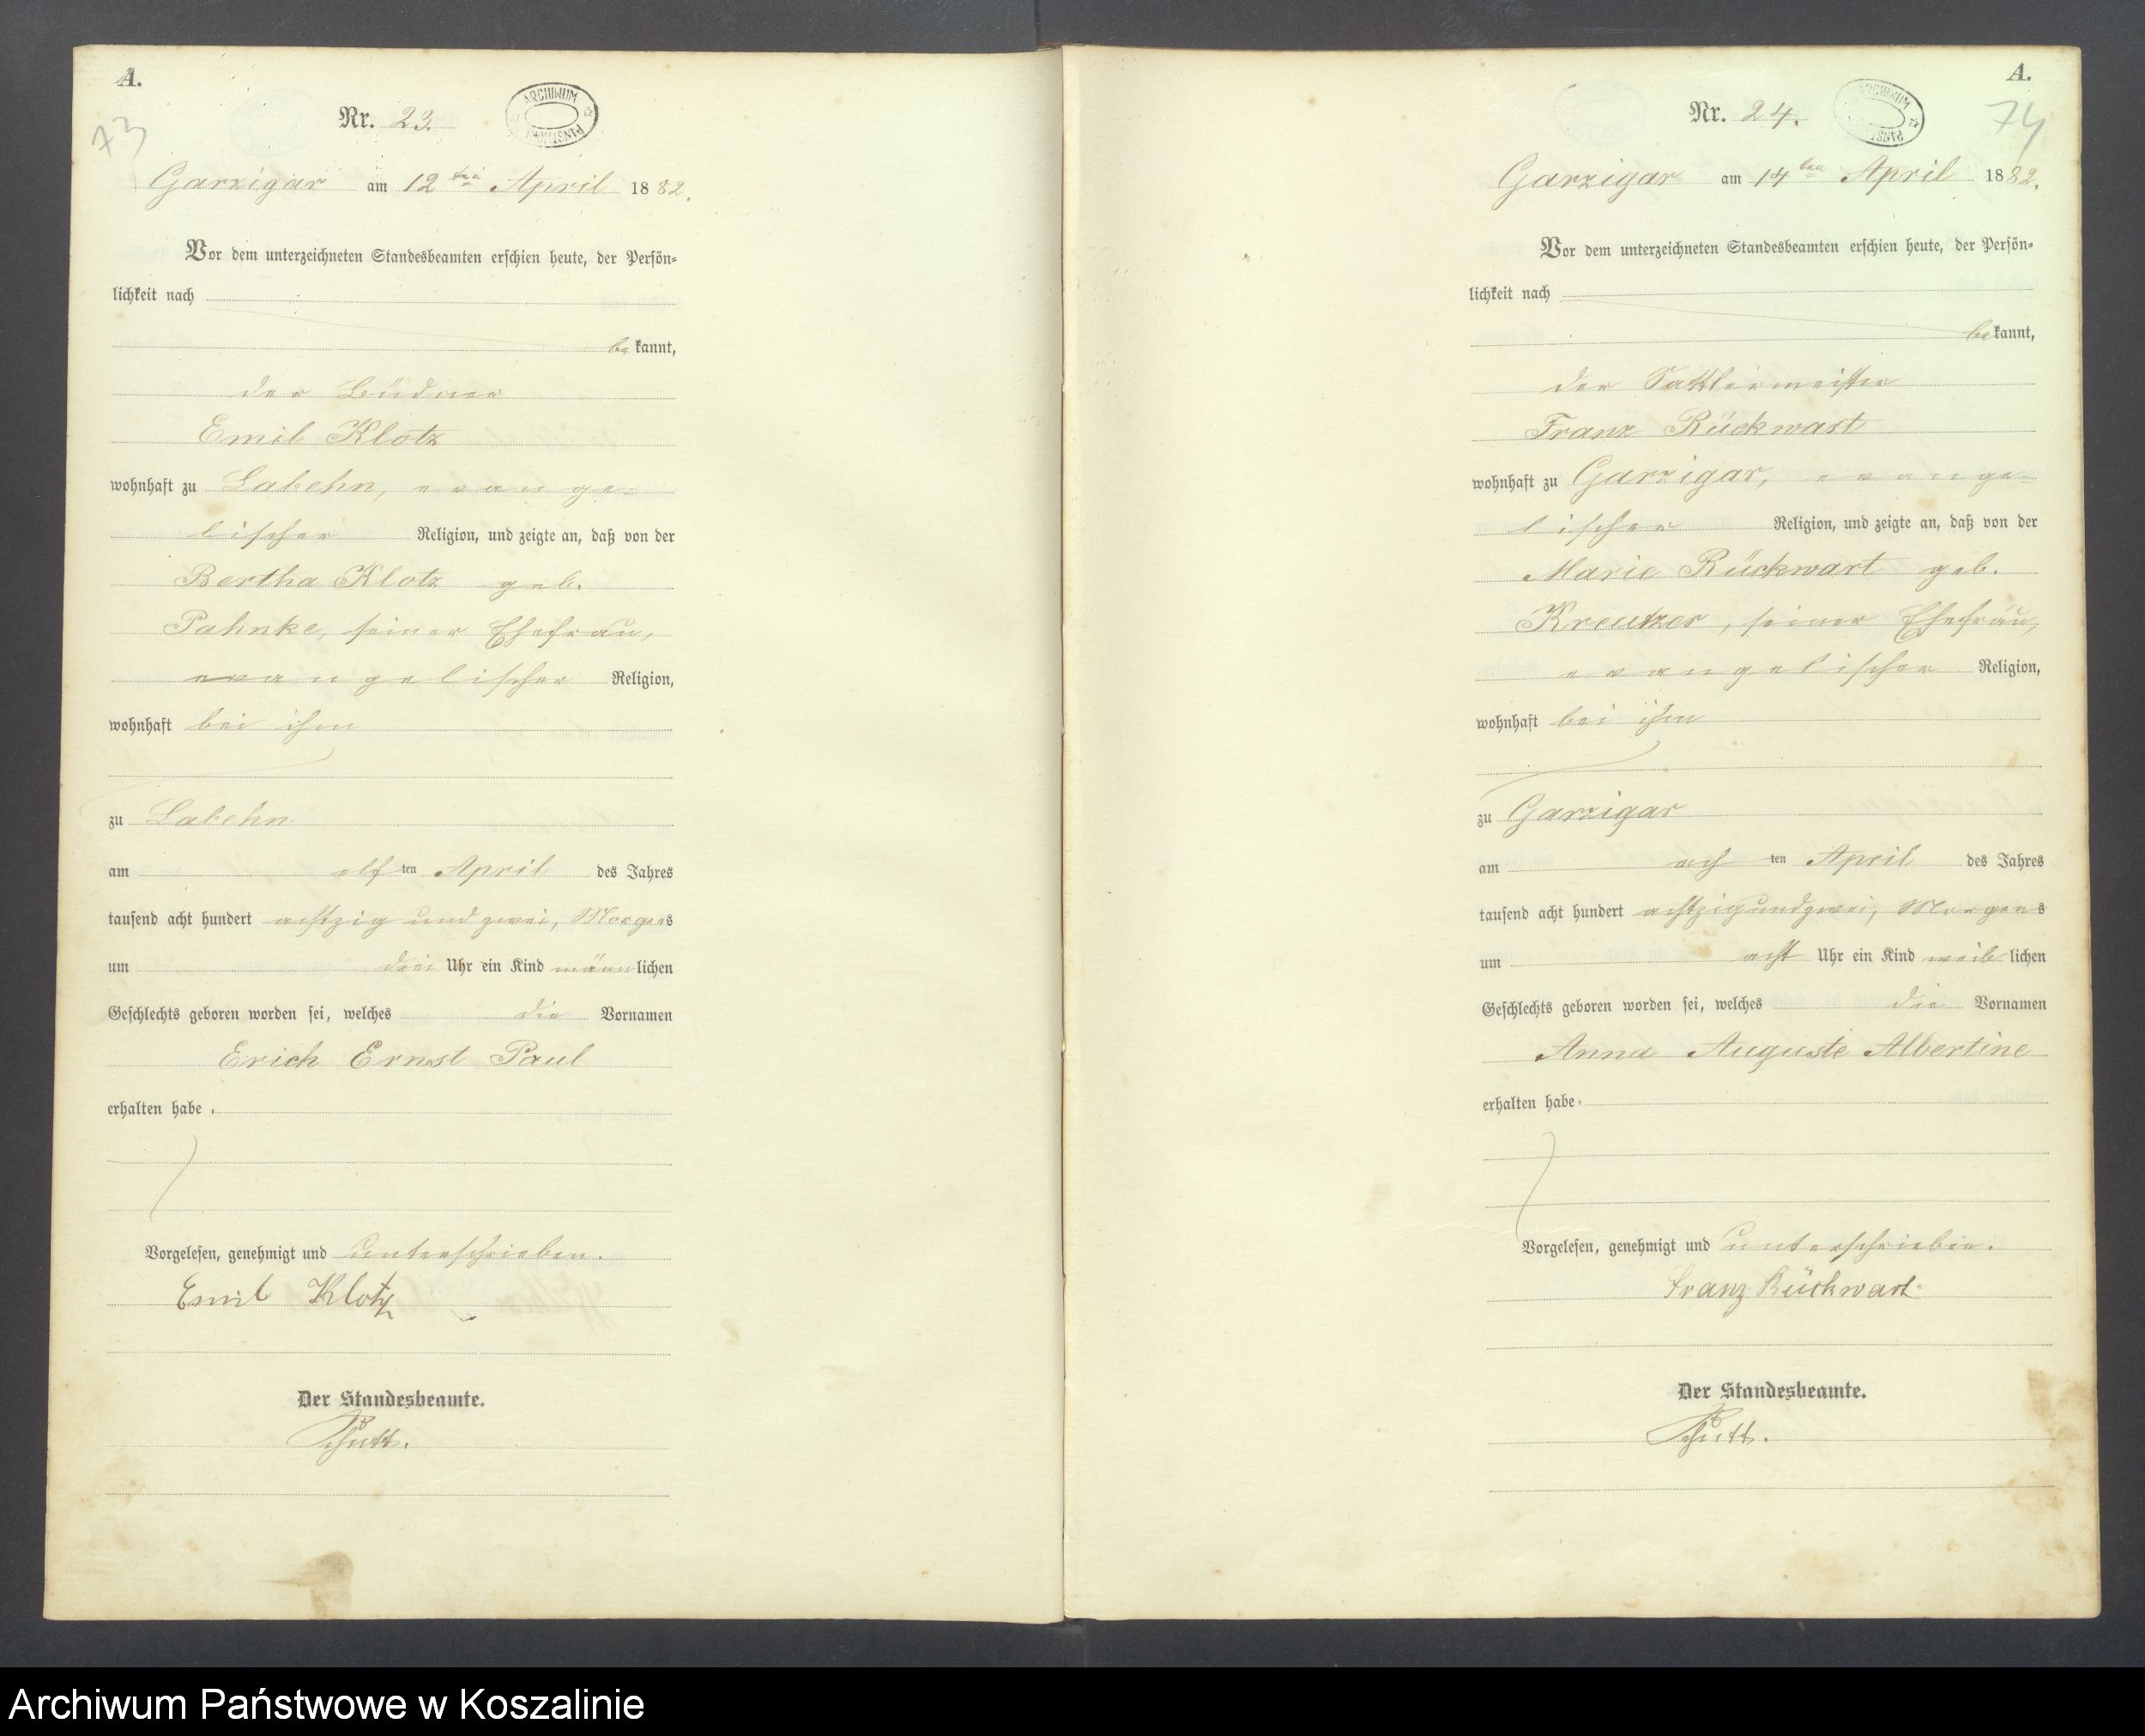 A.
73
Nr. 23.
ARCHIWUM
Garzigar am 12ten April 1882.
Vor dem unterzeichneten Standesbeamten erschien heute, der Persön-
lichkeit nach
bekannt,
der Büdner
Emil Klotz
wohnhaft zu Labehn, evange-
lischer Religion, und zeigte an, daß von der
Bertha Klotz geb.
Pahnke, seiner Ehefrau,
evangelischer Religion,
wohnhaft bei ihm
zu Labehn
am elften April des Jahres
tausend acht hundert achtzig und zwei, Morgens
um drei Uhr ein Kind männlichen
Geschlechts geboren worden sei, welches die Vornamen
Erich Ernst Paul
erhalten habe.
Vorgelesen, genehmigt und unterschrieben.
Emil Klotz
Der Standesbeamte.
A.
74
Nr. 24.
ARCHIWUM
Garzigar am 14ten April 1882.
Vor dem unterzeichneten Standesbeamten erschien heute, der Persön-
lichkeit nach
bekannt,
der Sattlermeister
Franz Rückwart
wohnhaft zu Garzigar, evange-
lischer Religion, und zeigte an, daß von der
Marie Rückwart geb.
Kreutzer, seiner Ehefrau,
evangelischer Religion,
wohnhaft bei ihm
zu Garzigar
am achten April des Jahres
tausend acht hundert achtzig und zwei, Morgens
um acht Uhr ein Kind weiblichen
Geschlechts geboren worden sei, welches die Vornamen
Anna Auguste Albertine
erhalten habe.
Vorgelesen, genehmigt und unterschrieben.
Franz Rückwart
Der Standesbeamte.
Archiwum Państwowe w Koszalinie